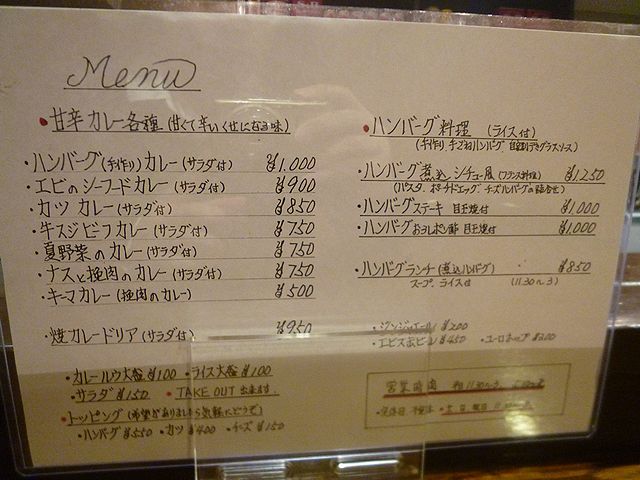 Menu
・甘辛カレー各種 (甘くて辛いくせになる味)
・ハンバーグ(手作り)カレー(サラダ付) ¥1.000
・エビのシーフードカレー(サラダ付) ¥900
・カツカレー(サラダ付) ¥850
・牛スジビーフカレー(サラダ付) ¥750
・夏野菜のカレー(サラダ付) ¥750
・ナスと挽肉のカレー(サラダ付) ¥750
・キーマカレー(挽肉のカレー) ¥500
・焼カレードリア(サラダ付) ¥950
・カレールウ大盛¥100 ・ライス大盛¥100
・サラダ¥150 ・TAKE OUT 出来ます。
・トッピング(希望がありましたら気軽にどうぞ)
・ハンバーグ¥550 ・カツ¥400 ・チーズ¥150
・ハンバーグ料理 (ライス付)
(手作り チーズ in ハンバーグ 自家製デミグラスソース)
・ハンバーグ煮込シチュー風(フランス料理) ¥1250
(パスタ、ポーチドエッグ、チーズハンバーグの組合せ)
・ハンバーグステーキ 目玉焼付 ¥1,000
・ハンバーグおろしポン酢 目玉焼付 ¥1,000
・ハンバーグランチ(煮込ハンバーグ) ¥850
スープ、ライス付 (11:30~3)
・ジンジャエール ¥200
・エビスビール ¥450
営業時間
・定休日